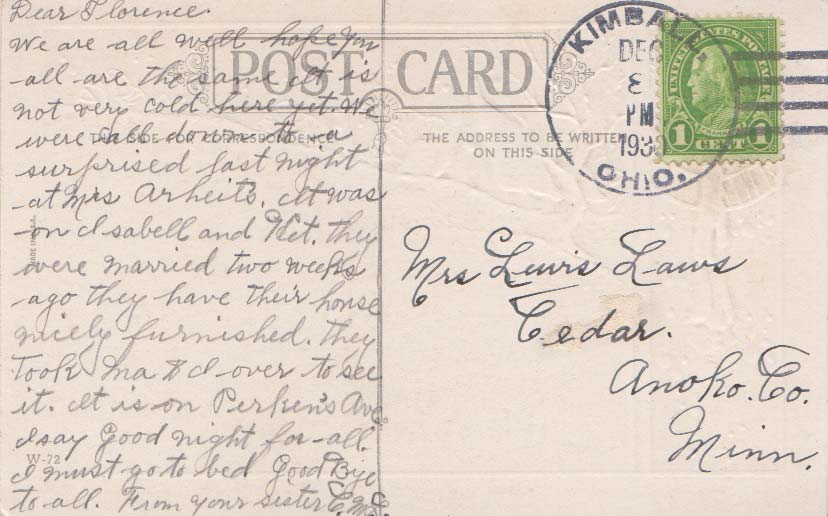 Dear Florence.
We are all well hope you
all are the same it is
not very cold here yet. We
were all down to a
surprised last night
at Mrs Arheits. It was
on Isabell and Net. they
were married two weeks
ago they have their house
nicely furnished. they
took ma & I over to see
it. It is on Perken's Ave
I say Good night for all.
I must go to bed Good Bye
to all. From your sister
POST CARD
THIS SIDE FOR CORRESPONDENCE
THE ADDRESS TO BE WRITTEN
ON THIS SIDE
W-72
KIMBAL
DEC
8
PM
193
OHIO.
UNITED STATES POSTAGE
FRANKLIN
1 CENT 1
Mrs Lewis Laws
Cedar.
Anoko. Co.
Minn.